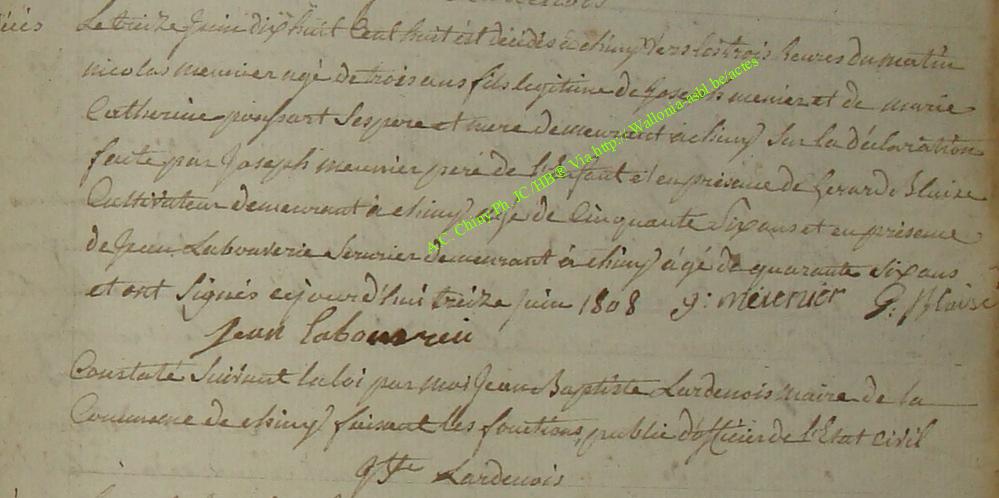 Le treize Juin dix huit Cent huit est décédé à chiny vers les trois heures du matin
nicolas meunier agé de trois ans fils legitime de Joseph menier et de marie
Catherine ses pere et mere demeurant à chiny sur la déclaration
faite par Joseph meunier pere de l'enfant et en présence de Gerard Blaise
Cultivateur demeurant à chiny agé de Cinquante Six ans et en présence
de Jean Labouverie Serurier demeurant à chiny agé de quarante Six ans
et ont Signés cejourd'hui treize juin 1808 g: meunier G: Blaise
Jean
Constaté Suivant la loi par moi Jean Baptiste Lardenois maire de la
Commune de chiny faisant les fonctions public d'officier de l'Etat Civil
Lardenois
A.C. Chiny Ph. JC /HB® Via http://Wallonia-asbl.be/actes